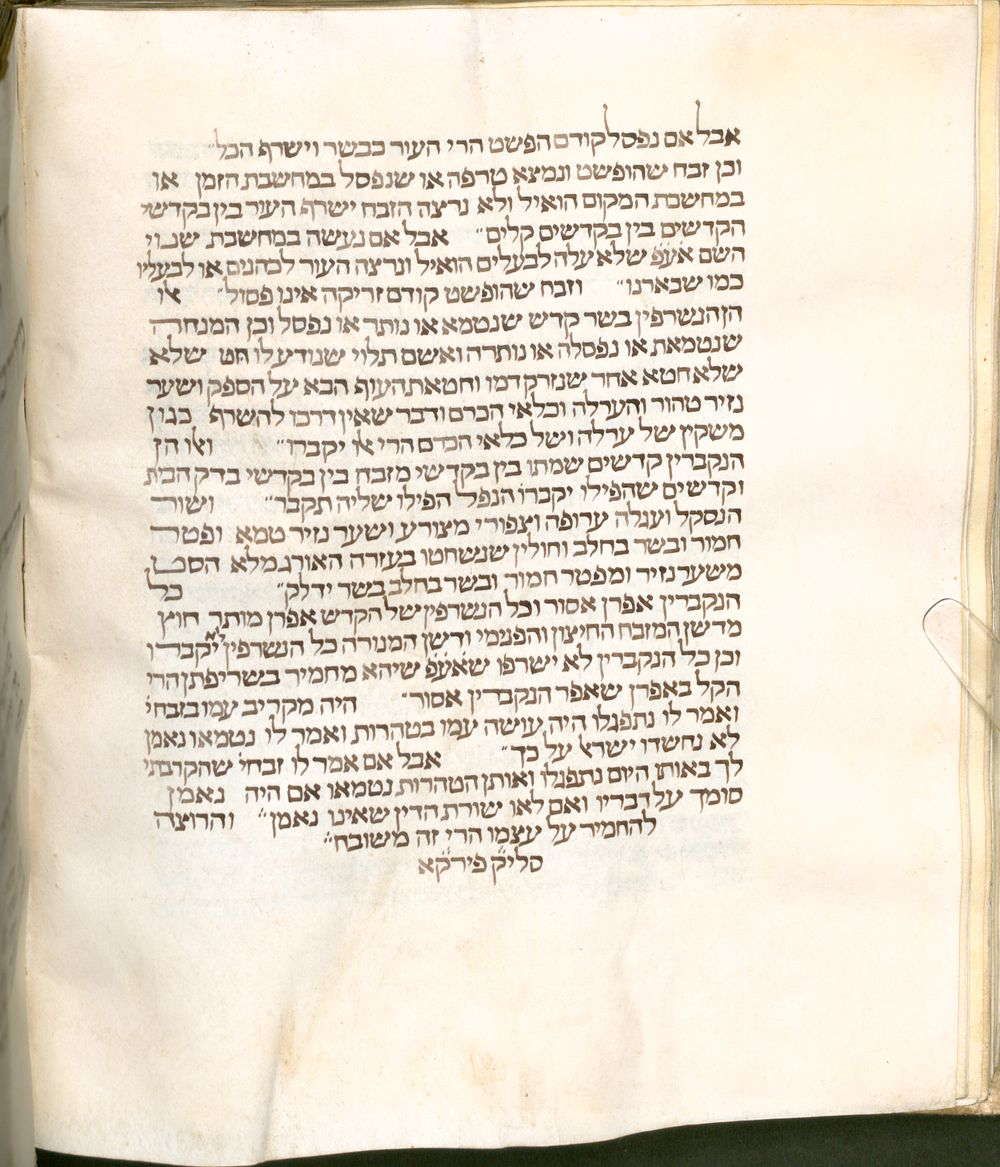 אבל אם נפסל קודם הפשט הרי העור כבשר וישרף הכל״
וכן זבח שהופשט ונמצא טרפה או שנפסל במחשבת הזמן או
במחשבת המקום הואיל ולא נרצה הזבח ישרף העור בין בקדשי
הקדשים בין בקדשים קלים״ אבל אם נעשה במחשבת שנוי
השם אעפ שלא עלה לבעלים הואיל ונרצה העור לכהנים או לבעליו
כמו שבארנו״ וזבח שהופשט קודם זריקה אינו פסול״ אלו
הן הנשרפין בשר קדש שנטמא או נותר או נפסל וכן המנחה
שנטמאת או נפסלה או נותרה ואשם תלוי שנודע לו חט שלא
שלא חטא אחר שנזרק דמו וחטאת העוף הבא על הספק ושער
נזיר טהור והערלה וכלאי הכרם ודבר שאין דרכו להשרף כגון
משקין של ערלה ושל כלאי הכרם הרי אלו יקברו״ ואלו הן
הנקברין קדשים שמתו בין בקדשי מזבח בין בקדשי בדק הבית
וקדשים שהפילו יקברו הנפל הפילו שליה תקבר״ ושור
הנסקל ועגלה ערופה וצפורי מצורע ושער נזיר טמא ופטר
חמור ובשר בחלב וחולין שנשחטו בעזרה האורג מלא הסט
משער נזיר ומפטר חמור ובשר בחלב בשר ידלק״ כל
הנקברין אפרן אסור וכל הנשרפין של הקדש אפרן מותר חוץ
מדשן המזבח החיצון והפנימי ודשן המנורה כל הנשרפין לא יקברו
וכן כל הנקברין לא ישרפו שאעפ שיהא מחמיר בשריפתן הרי
הקל באפרן שאפר הנקברין אסור״ היה מקריב עמו בזבחי
ואמר לו נתפגלו היה עושה עמו בטהרות ואמר לו נטמאו נאמן
לא נחשדו ישראל על כך״ אבל אם אמר לו זבחי שהקרבתי
לך באותו היום נתפגלו ואותן הטהרות נטמאו אם היה נאמן
סומך על דבריו ואם לאו שורת הדין שאינו נאמן״ והרוצה
להחמיר על עצמו הרי זה משובח״
סליק פירקא